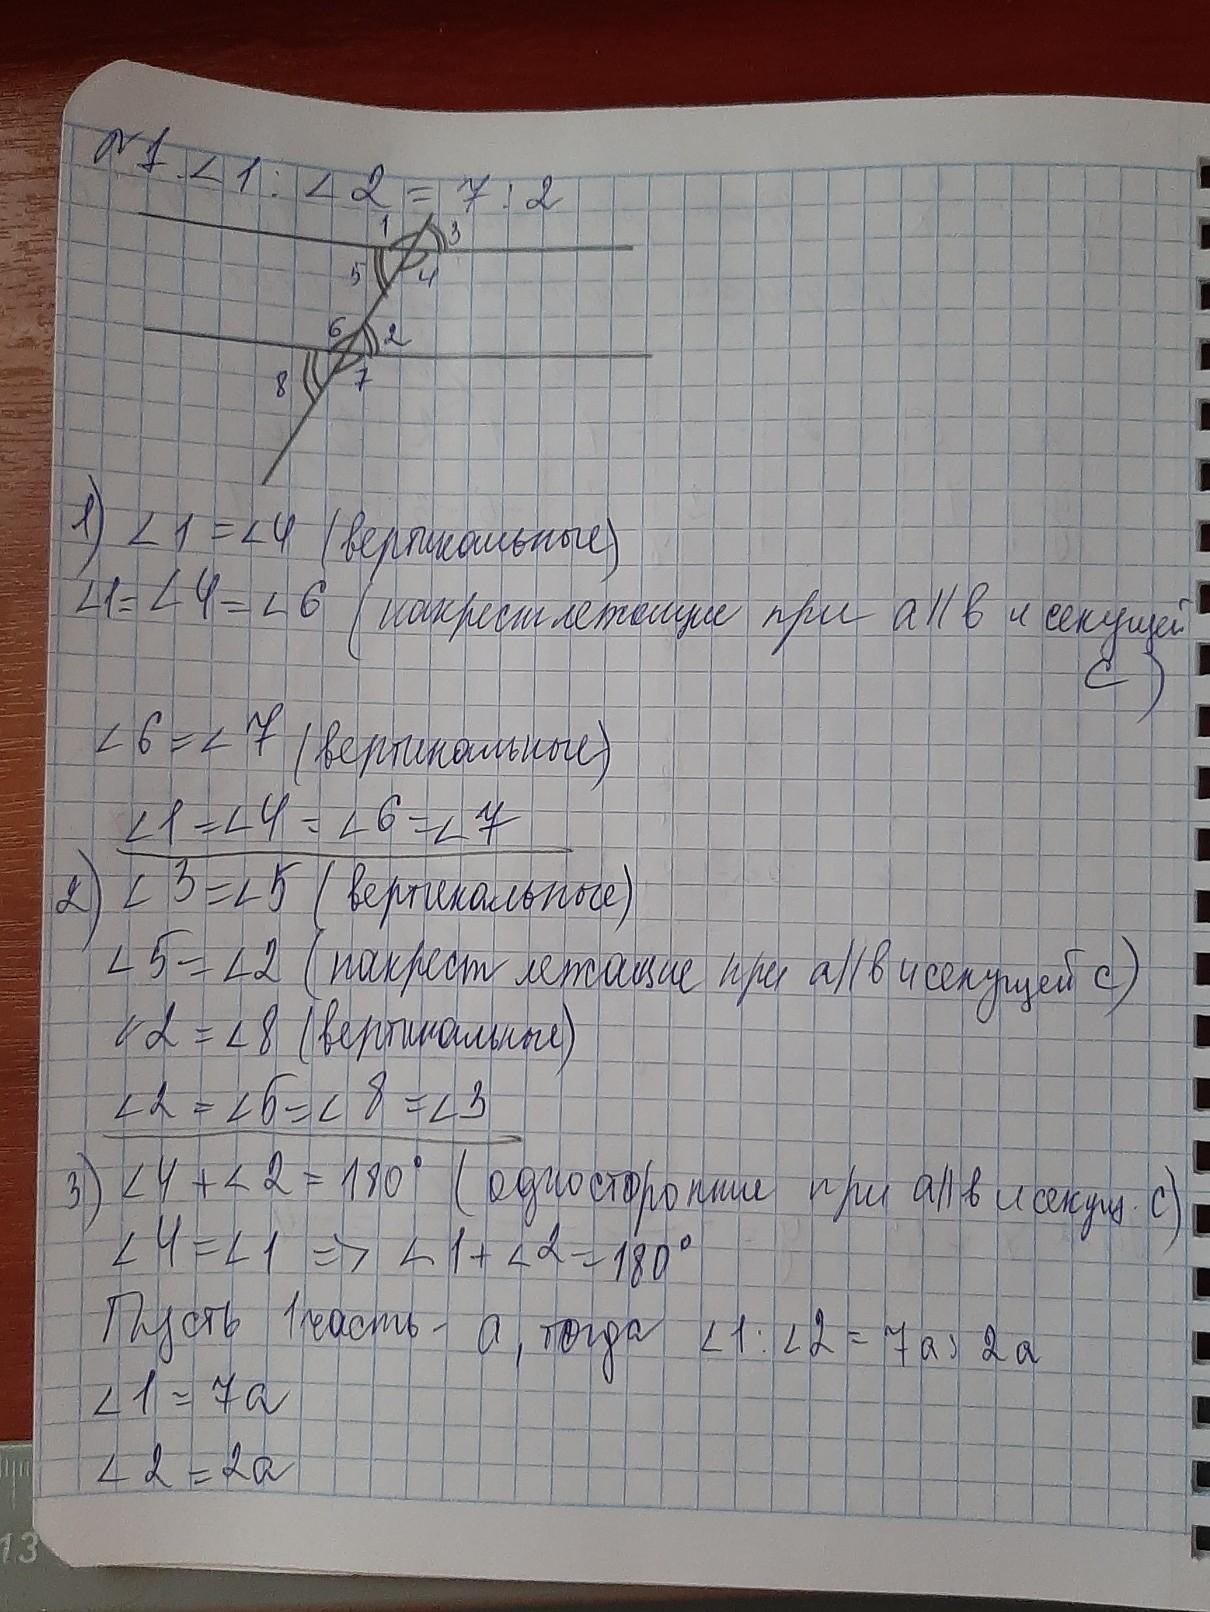 №1. ∠1 : ∠2 = 7 : 2
1 3
5 4
6 2
8 7
1) ∠1 = ∠4 (вертикальные)
∠1 = ∠4 = ∠6 (накрест лежащие при a||b и секущей
c)
∠6 = ∠7 (вертикальные)
∠1 = ∠4 = ∠6 = ∠7
2) ∠3 = ∠5 (вертикальные)
∠5 = ∠2 (накрест лежащие при a||b и секущей c)
∠2 = ∠8 (вертикальные)
∠2 = ∠5 = ∠8 = ∠3
3) ∠4 + ∠2 = 180° (односторонние при a||b и секущ. c)
∠4 = ∠1 => ∠1 + ∠2 = 180°
Пусть 1 часть - a, тогда ∠1 : ∠2 = 7a : 2a
∠1 = 7a
∠2 = 2a
13